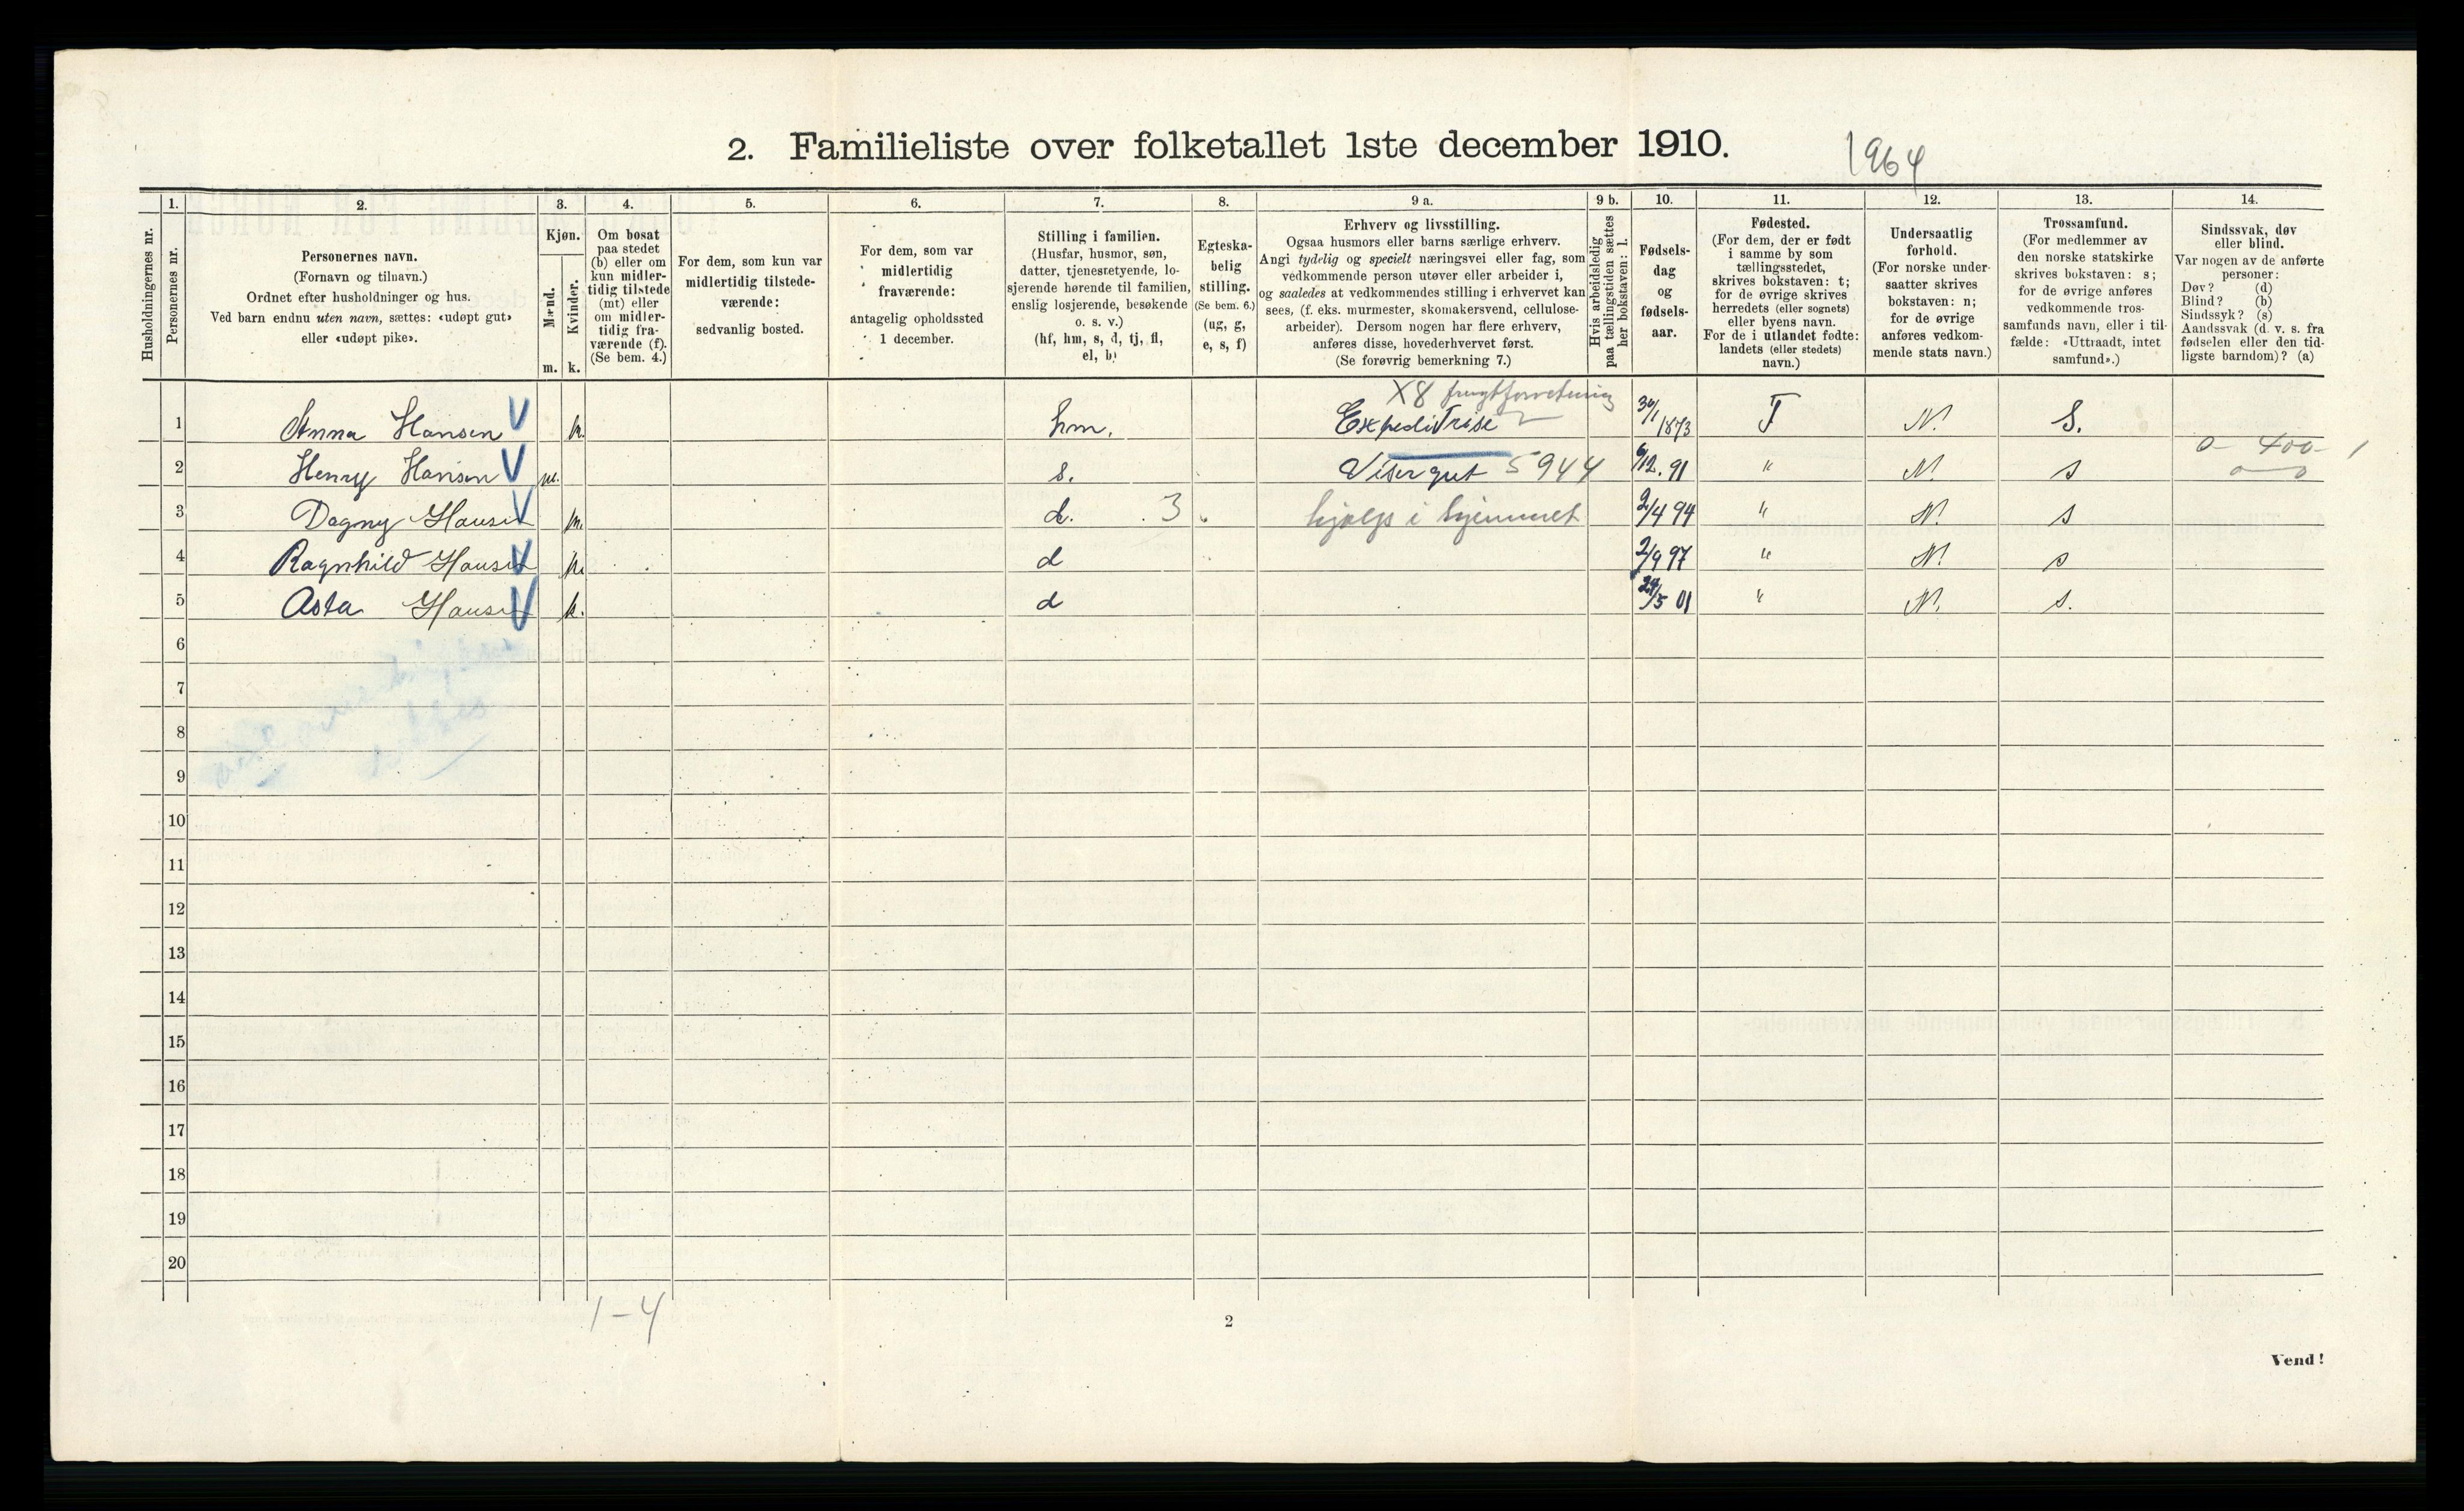 2. Familieliste over folketallet 1ste december 1910.
1964
Husholdningernes nr.
1.
Personernes nr.
2.
Personernes navn.
(Fornavn og tilnavn.)
Ordnet efter husholdninger og hus.
Ved barn endnu uten navn, sættes: «udøpt gut»
eller «udøpt pike».
3.
Kjøn.
Mænd.
Kvinder.
m. k.
4.
Om bosat
paa stedet
(b) eller om
kun midler-
tidig tilstede
(mt) eller
om midler-
tidig fra-
værende (f).
(Se bem. 4.)
5.
For dem, som kun var
midlertidig tilstede-
værende:
sedvanlig bosted.
6.
For dem, som var
midlertidig
fraværende:
antagelig opholdssted
1 december.
7.
Stilling i familien.
(Husfar, husmor, søn,
datter, tjenestetyende, lo-
sjerende hørende til familien,
enslig losjerende, besøkende
o. s. v.)
(hf, hm, s, d, tj, fl,
el, b)
8.
Egteska-
belig
stilling.
(Se bem. 6.)
(ug, g,
e, s, f)
9 a.
Erhverv og livsstilling.
Ogsaa husmors eller barns særlige erhverv.
Angi tydelig og specielt næringsvei eller fag, som
vedkommende person utøver eller arbeider i,
og saaledes at vedkommendes stilling i erhvervet kan
sees, (f. eks. murmester, skomakersvend, cellulose-
arbeider). Dersom nogen har flere erhverv,
anføres disse, hovederhvervet først.
(Se forøvrig bemerkning 7.)
9 b.
Hvis arbeidsledig
paa tællingstiden sættes
her bokstaven: l.
10.
Fødsels-
dag
og
fødsels-
aar.
11.
Fødested.
(For dem, der er født
i samme by som
tællingsstedet,
skrives bokstaven: t;
for de øvrige skrives
herredets (eller sognets)
eller byens navn.
For de i utlandet fødte:
landets (eller stedets)
navn.)
12.
Undersaatlig
forhold.
(For norske under-
saatter skrives
bokstaven: n;
for de øvrige
anføres vedkom-
mende stats navn.)
13.
Trossamfund.
(For medlemmer av
den norske statskirke
skrives bokstaven: s;
for de øvrige anføres
vedkommende tros-
samfunds navn, eller i til-
fælde: «Uttraadt, intet
samfund».)
14.
Sindssvak, døv
eller blind.
Var nogen av de anførte
personer:
Døv? (d)
Blind? (b)
Sindssyk? (s)
Aandssvak (d. v. s. fra
fødselen eller den tid-
ligste barndom)? (a)
X8 frugtforretning
1 Anna Hansen V k. hm. Expeditrise 30/1 1873 T N. S.
0 - 400 -
2 Henry Hansen V m. s. Visergut 5944 6/12. 91 " N. s 0 - 0
3 Dagny Hansen V k. d. 3 hjælp i hjemmet 2/4 94 " N. s
4 Ragnhild Hansen V k. d 2/9 97 " N. s
5 Asta Hansen V k. d 24/5 01 " N. s.
6
7
8
9
10
11
12
13
14
15
16
17
18
19
20
1-4
2
Vend!